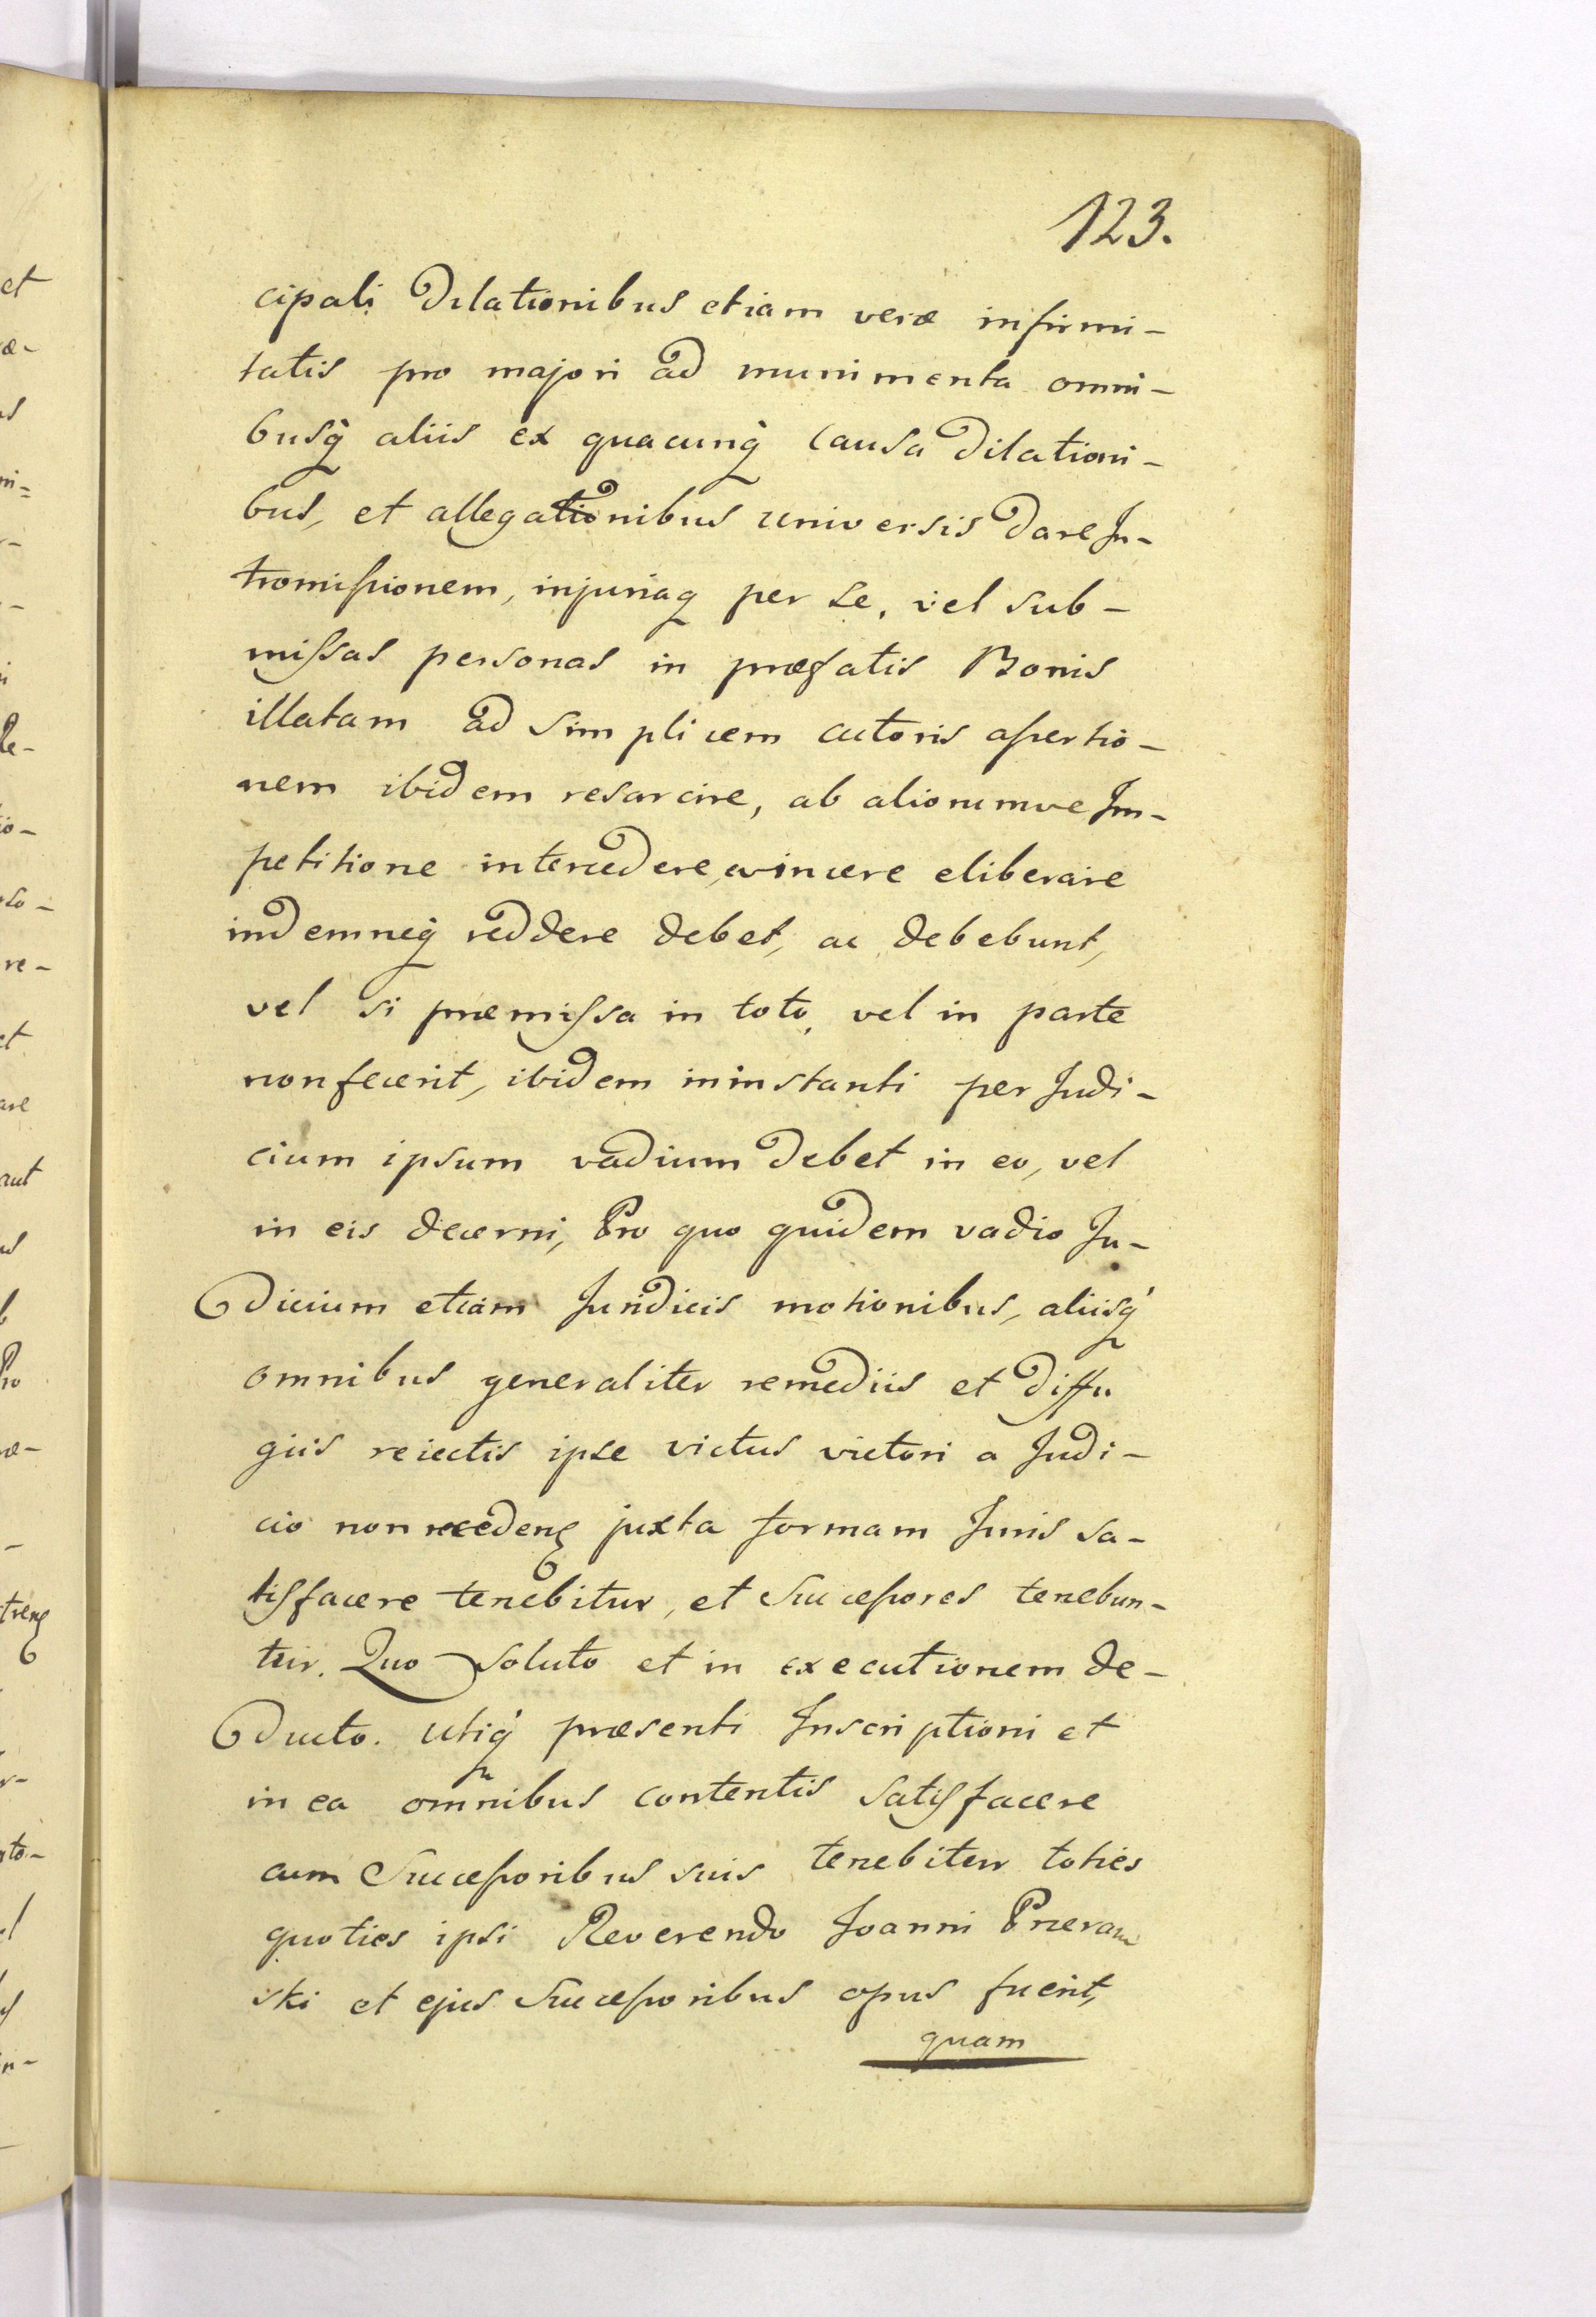 123.
cipali Dilationibus etiam veræ infirmi-
tatis pro majori ad munimenta omni-
busq̀ aliis ex quacunq̀ Causa Dilationi-
bus, et allegationibus universis Dare In-
tromissionem, injuriaq per se, vel sub-
missas personas in præfatis Bonis
illatam ad simplicem actoris assertio-
nem ibidem resarcire, ab aliorumve Im-
petitione intercedere, evincere eliberare
indemneq̀ reddere debet, ac debebunt,
vel si præmissa in toto, vel in parte
non fecerit, ibidem in instanti per Judi-
cium ipsum vadium Debet in eo, vel
in eis decerni, Pro quo quidem vadio Ju-
Dicium etiam Juridicis motionibus, aliisq̀
omnibus generaliter remediis et Diffu
giis reiectis ipse victus victori a Judi-
cio non recedenς juxta formam Juris sa-
tisfacere tenebitur, et Successores tenebun-
tur. Quo soluto et in executionem de-
Ducto. Utiq̀ præsenti Inscriptioni et
in ea omnibus contentis satisfacere
cum Successoribus suis tenebitur toties
quoties ipsi Reverendo Joanni
ski et ejus Successoribus opus fuerit,
quam
et
æ-
ni=
Re-
io-
re-
et
are
aut
Pro
æ-
trenς
to-
n-